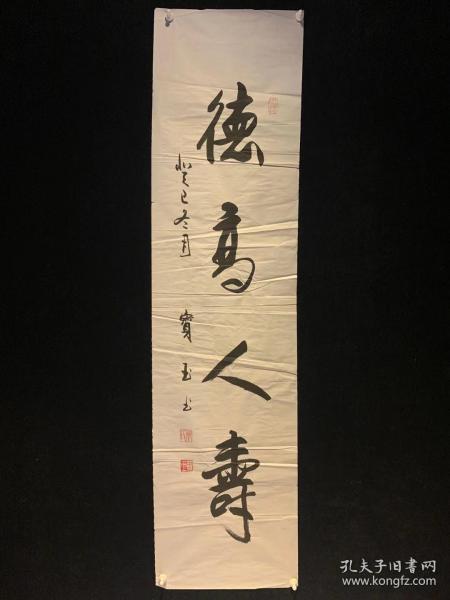 德高人壽
癸巳冬月
寳玉书
孔夫子旧书网
www.kongfz.com